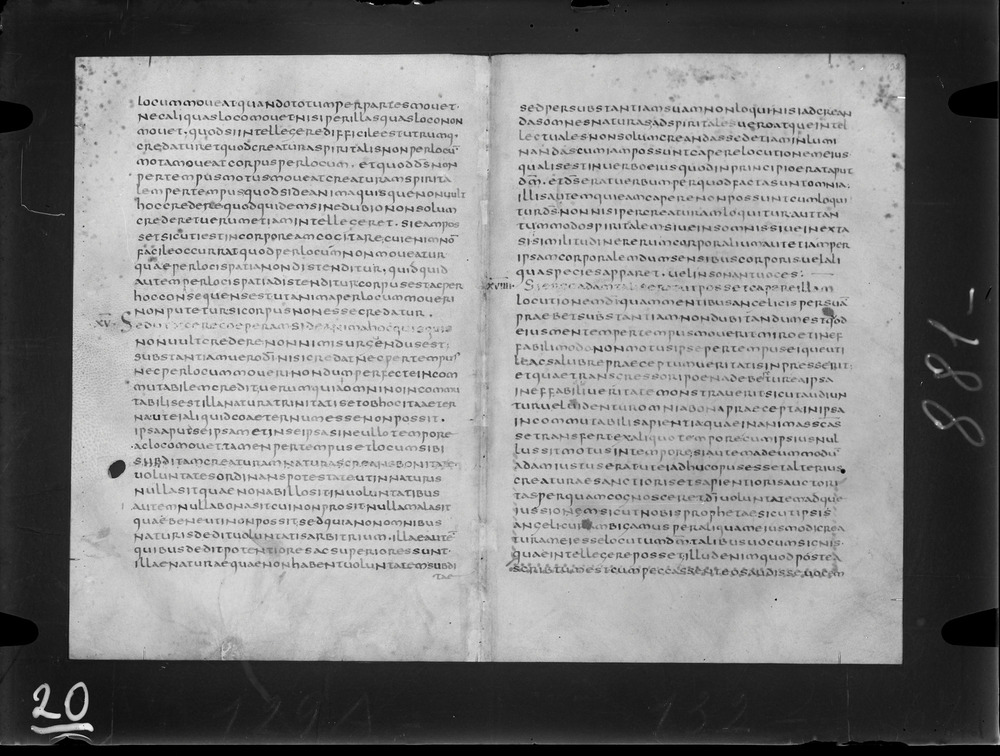 locummoueatquandototumperpartesmouet·
necaliquaslocomouetnisiperillasquasloconon
mouet. quodsiintellegeredifficileestutrumq·
credatureetquodcreaturaspiritalisnonperlocū
motamoueatcorpusperlocum. etquoddsnon
pertempusmotusmoueatcreaturamspirita
lempertempusquodsideanimaquisquenonuult
hoccrederequodquidemsinedubiononsolum
credereetuerumetiamintellegeret. sieampos
setsicutiestincorporeamcogitare, cuienimnō
facileoccurratquodperlocumnonmoueatur
quaeperlocispatianondistenditur. quidquid
autemperlocispatiadistenditurcorpusestacper
hocconsequensestutanimaperlocummoueri
nonputetursicorpusnonessecredatur.
xv· Sed
nonuultcrederenonnimisurgendusest;
substantiamuerodīnisicredatnecpertempus
necperlocummouerinondumperfecteincom
mutabilemcredit, uerumquiaomninoincommu
tabilisestillanaturatrinitatisetobhocitaaeter
nautei aliquidcoaeternumessenonpossit.
ipsaaputseipsametinseipsasineullotempore
aclocomouettamenpertempusetlocumsibi
subditamcreaturamnaturascreansbonitate
uoluntatesordinanspotestateutinnaturis
nullasitquaenonabillositinuoluntatibus
autemnullabonasitcuinonprositnullamalasit
quabeneutinonpossit, sedquianonomnibus
naturisdedituoluntatisarbitrium. illaeautē
quibusdeditpotentioresacsuperioressunt·
illaenaturaequaenonhabentuoluntatemsubdi
tae
sedpersubstantiamsuamnonloquinisiadcrean
dasomnesnaturasadspiritalesueroatqueintel
lectualesnonsolumcreandassedetiaminlumi
nandascumiampossuntcaperelocutionemeius
qualisestinuerboeiusquodinprincipioerataput
dm̄. etdseratuerbumperquodfactasuntomnia;
illisautemquieamcaperenonpossuntcumloqui
turdsnonnisipercreaturamloquituraut tan
tummodospiritalemsiueinsomnissiueinexta
sisimilitudinererumcorporaliumautetiamper
ipsamcorporalemdumsensibuscorporisuelali
quaspeciesapparet. uelinsonantuoces:
xviiii· Siergoadamtaliseratutpossetcapereillam
locutionemdīquammentibusangelicispersuā
praebetsubstantiamnondubitandumestqđ
eiusmentempertempusmoueritmiroetinef
fabilimodononmotusipsepertempuseiqueuti
leacsalubrepraeceptumueritatisinpresserit;
etquaetransgressoripoenadebereturea ipsa
ineffabiliueritatemonstraueritsicutaudiun
turueluidenturomniabonapraeceptainipsa
incommutabilisapientiaquaeinanimassēas
setransfertexaliquotemporecumipsiusnul
lussitmotusintempore; siautemadeummodū
adamiustuseratuteiadhucopusessetalterius
creaturaesanctiorisetsapientiorisauctori
tasperquamcognosceretdīuoluntatemadque
iussionemsicutnobisprophetaesicutipsis
angeli
turameiesselocutumdmtalibusuocumsignis·
quaeintellegereposset, illudenimquodpostea
scribtumestcumpeccassent
20
881-